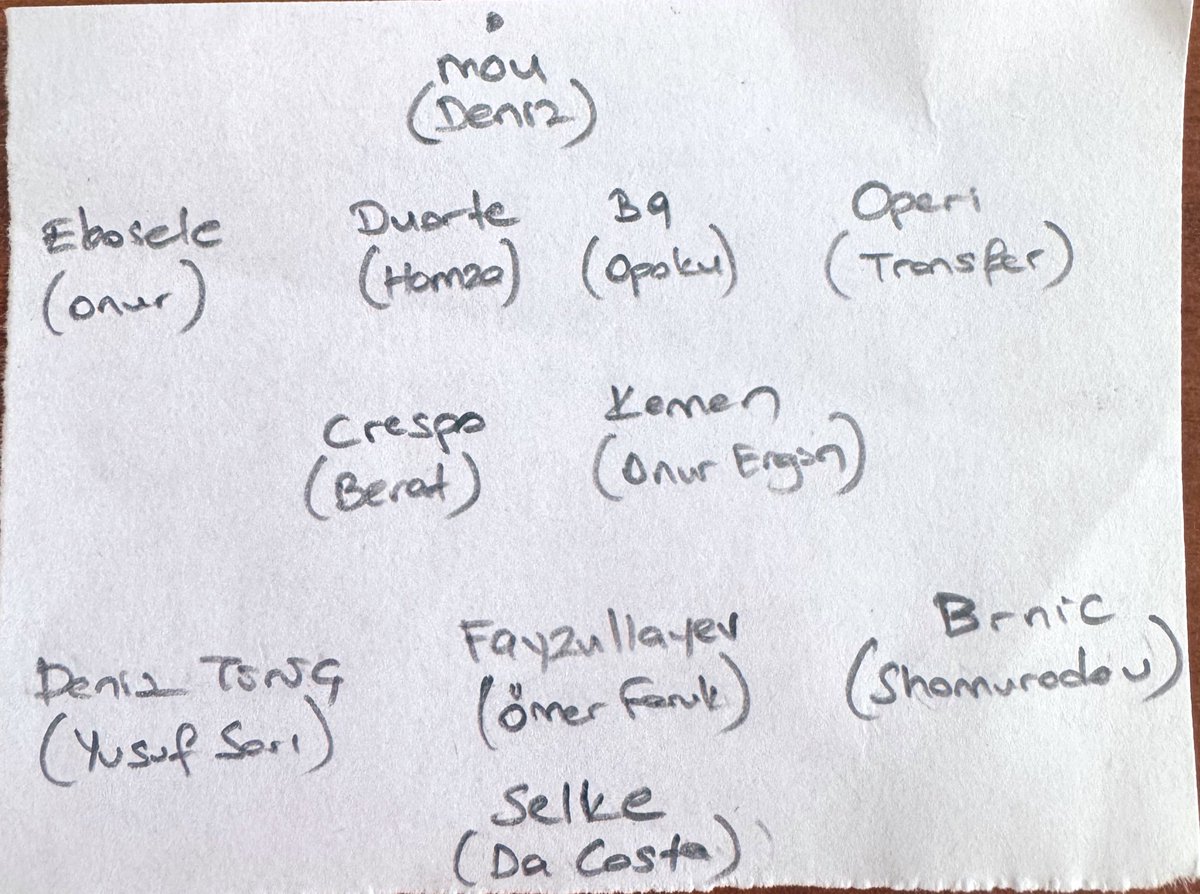 mou
(Deniz)
Ebosele
(Onur)
Duarte
(Hamza)
Ba
(Opoku)
Operi
(Transfer)
Crespo
(Berat)
Kemen
(Onur Ergün)
Deniz Türüç
(Yusuf Sarı)
Fayzullayev
(Ömer Faruk)
Brnic
(Shomurodov)
Selke
(Da Costa)